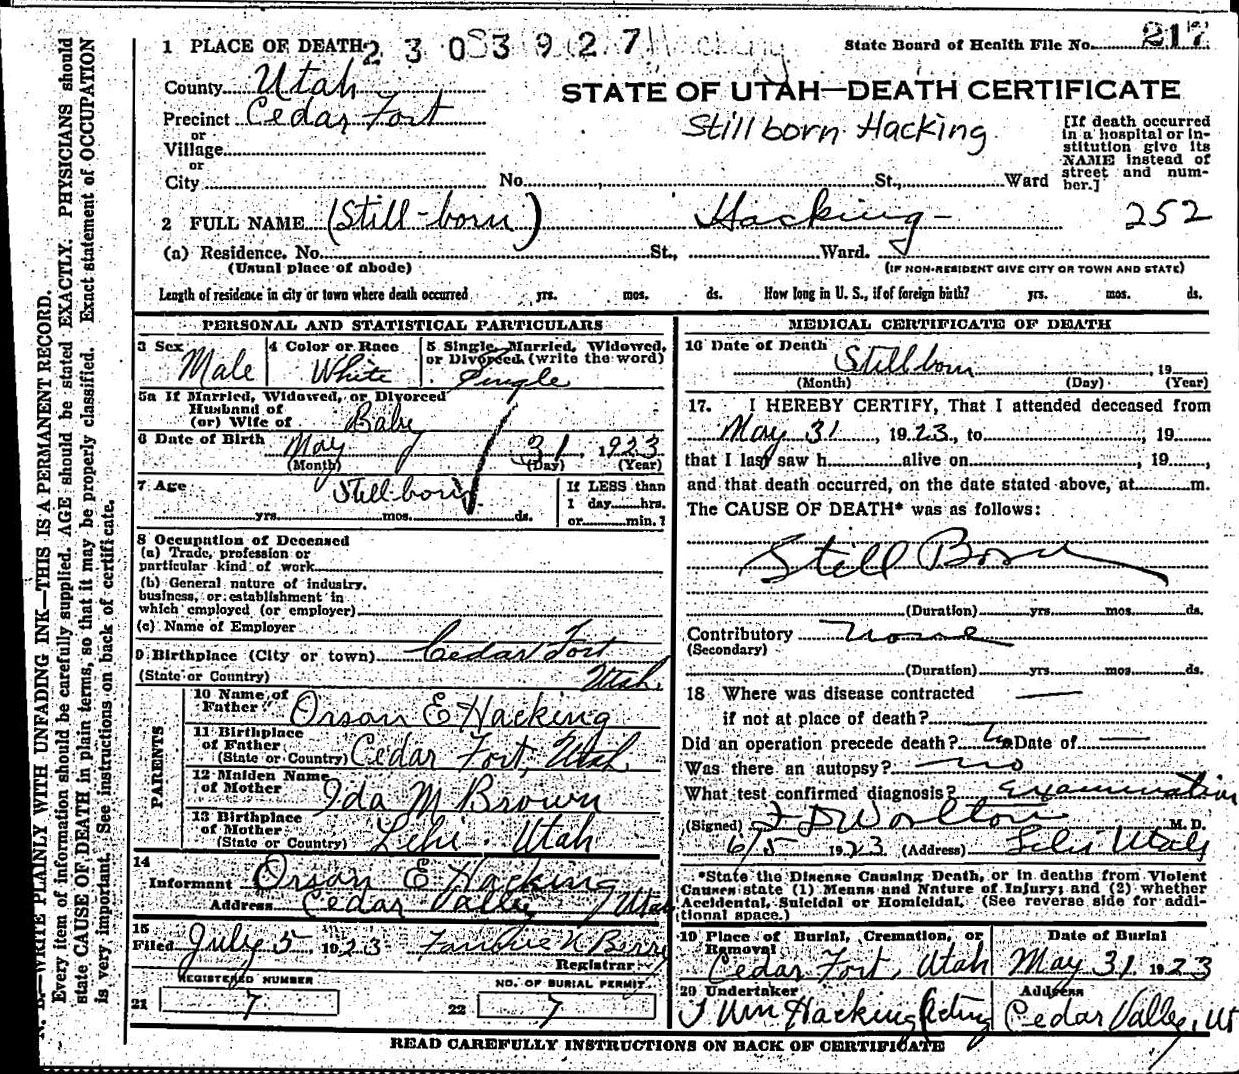 1 PLACE OF DEATH 2 3 0 3 9 2 7 Hacking State Board of Health File No. 217
County Utah
STATE OF UTAH—DEATH CERTIFICATE
Precinct Cedar Fort
Stillborn Hacking
[If death occurred in a hospital or institution give its NAME instead of street and number.]
or
Village
or
City No. St., Ward
2 FULL NAME (Still-born) Hacking 252
(a) Residence. No. St., Ward.
(Usual place of abode) (IF NON-RESIDENT GIVE CITY OR TOWN AND STATE)
Length of residence in city or town where death occurred yrs. mos. ds. How long in U. S., if of foreign birth? yrs. mos. ds.
PERSONAL AND STATISTICAL PARTICULARS
3 Sex Male
4 Color or Race White
5 Single, Married, Widowed, or Divorced (write the word) Single
5a If Married, Widowed, or Divorced
Husband of
(or) Wife of Baby
6 Date of Birth May 31, 1923
(Month) (Day) (Year)
7 Age Still-born
yrs. mos. ds.
If LESS than
1 day hrs.
or min.?
8 Occupation of Deceased
(a) Trade, profession or
particular kind of work
(b) General nature of industry,
business, or establishment in
which employed (or employer)
(c) Name of Employer
9 Birthplace (City or town) Cedar Fort
(State or Country) Utah.
PARENTS
10 Name of Father Orson E Hacking
11 Birthplace of Father (State or Country) Cedar Fort, Utah
12 Maiden Name of Mother Ida M Brown
13 Birthplace of Mother (State or Country) Lehi. Utah
14
Informant Orson E Hacking
Address Cedar Valley Utah
15
Filed July 5, 1923
Registrar
REGISTERED NUMBER
21 7
NO. OF BURIAL PERMIT
22 7
MEDICAL CERTIFICATE OF DEATH
16 Date of Death Stillborn, 19
(Month) (Day) (Year)
17. I HEREBY CERTIFY, That I attended deceased from
May 31, 1923, to , 19
that I last saw h alive on , 19 ,
and that death occurred, on the date stated above, at m.
The CAUSE OF DEATH* was as follows:
Still Born
(Duration) yrs. mos. ds.
Contributory None
(Secondary)
(Duration) yrs. mos. ds.
18 Where was disease contracted —
if not at place of death?
Did an operation precede death? No Date of —
Was there an autopsy? no
What test confirmed diagnosis? Examination
(Signed) M. D.
6/5 1923 (Address) Lehi Utah
*State the Disease Causing Death, or in deaths from Violent
Causes state (1) Means and Nature of Injury; and (2) whether
Accidental, Suicidal or Homicidal. (See reverse side for addi-
tional space.)
19 Place of Burial, Cremation, or Removal Cedar Fort, Utah
Date of Burial May 31 1923
20 Undertaker J Wm Hacking Acting
Address Cedar Valley, Ut
READ CAREFULLY INSTRUCTIONS ON BACK OF CERTIFICATE
N. B.—WRITE PLAINLY WITH UNFADING INK—THIS IS A PERMANENT RECORD.
Every item of information should be carefully supplied. AGE should be stated EXACTLY. PHYSICIANS should
state CAUSE OF DEATH in plain terms, so that it may be properly classified. Exact statement of OCCUPATION
is very important. See instructions on back of certificate.